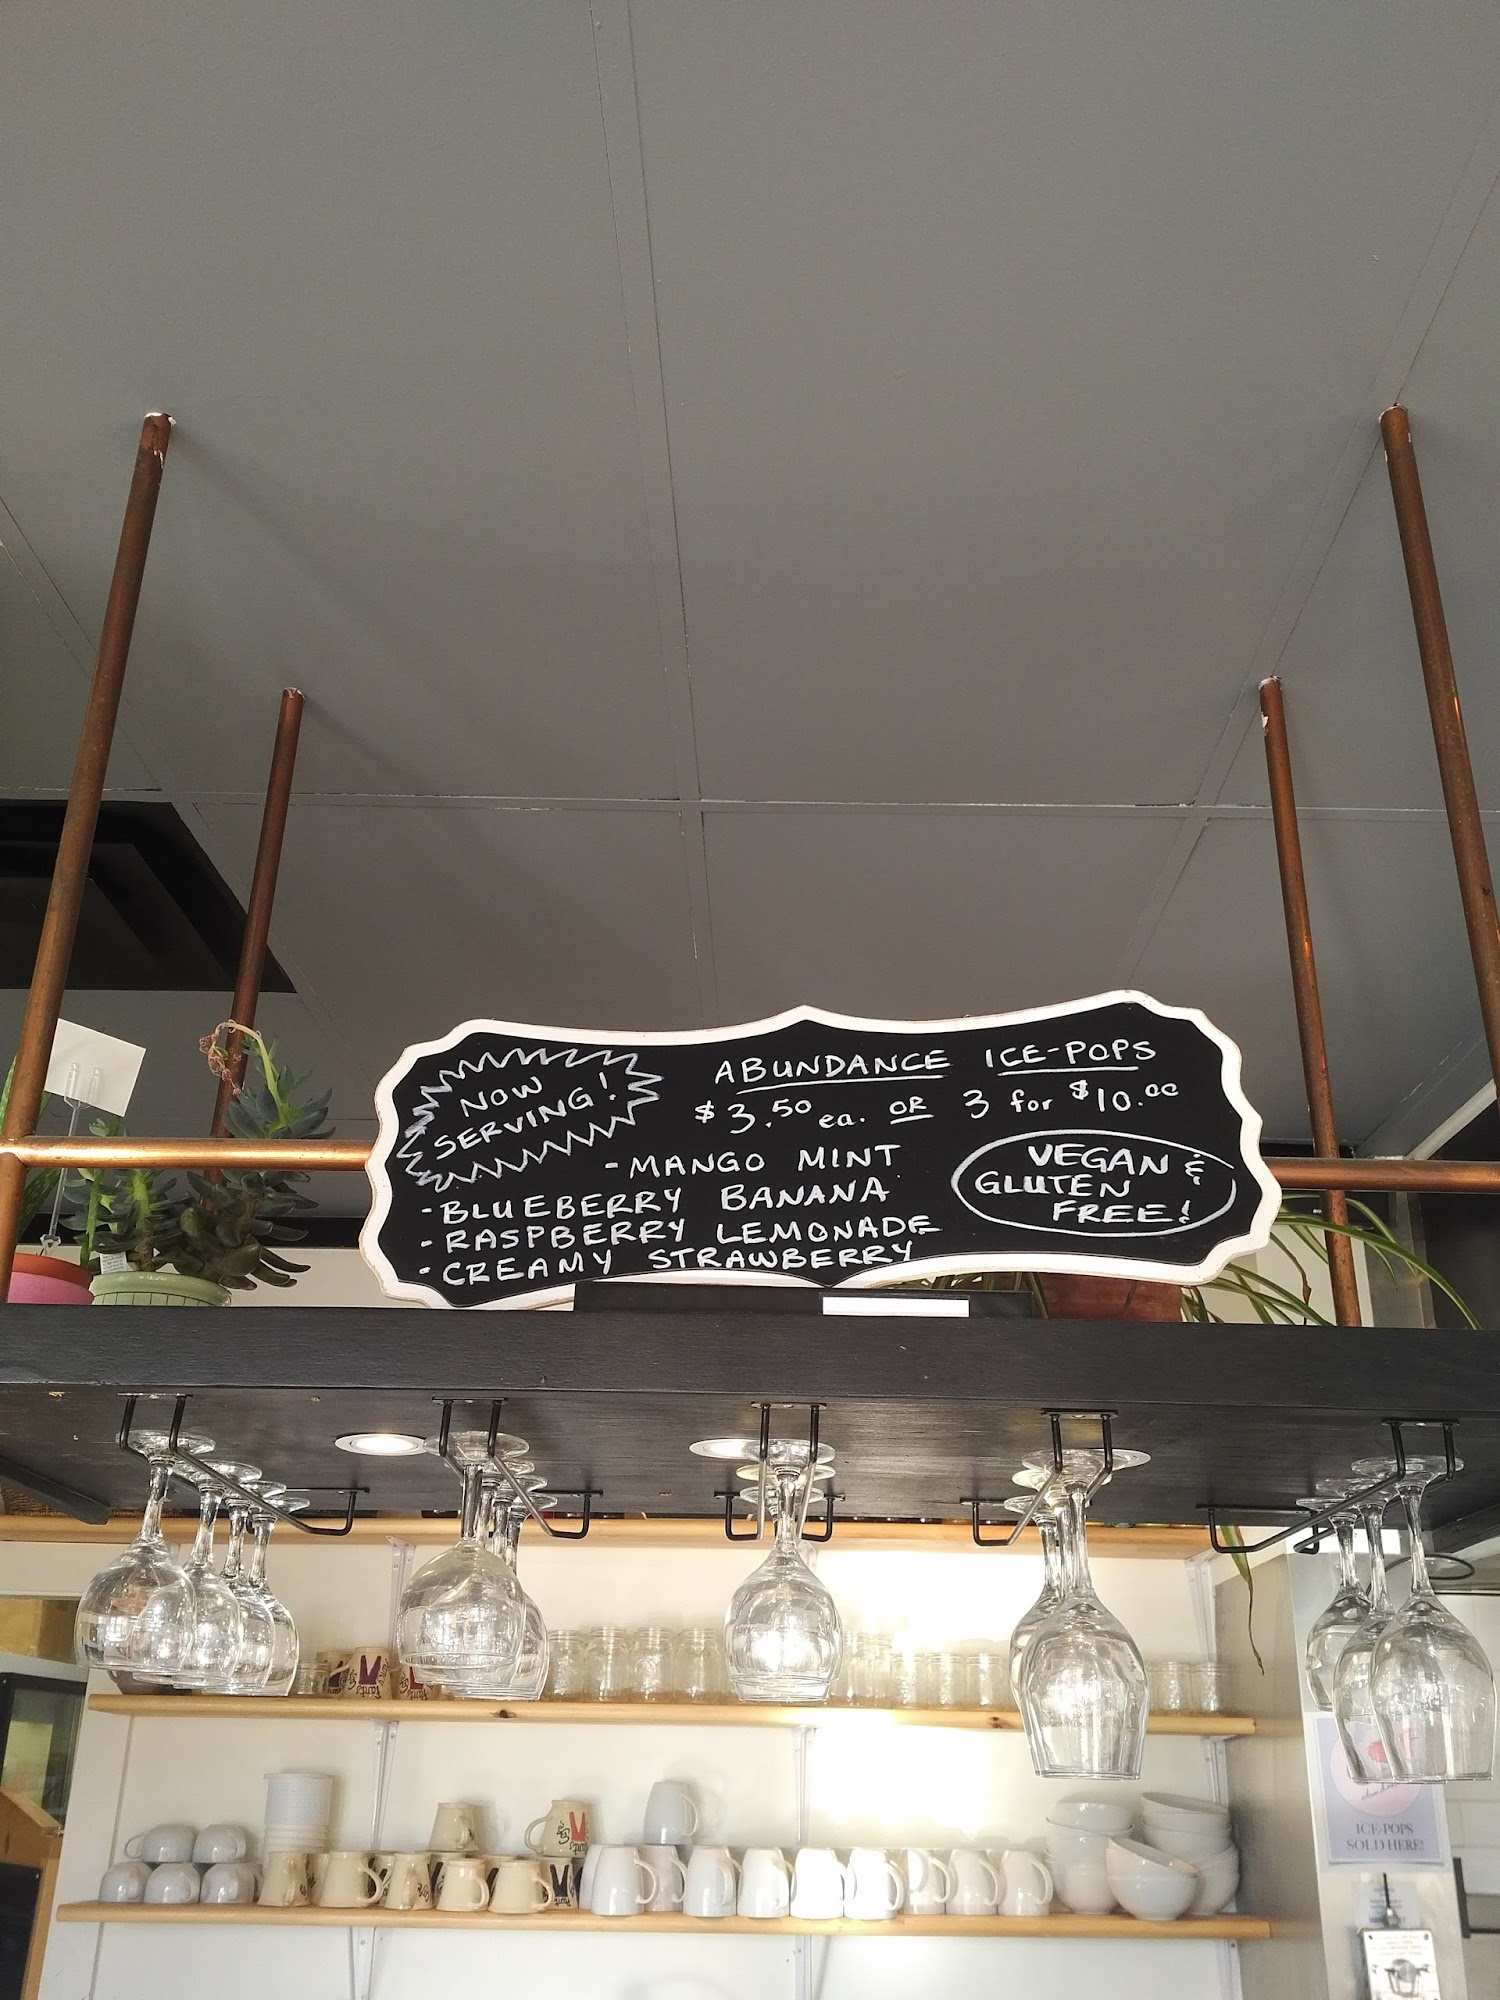 NOW
SERVING!
ABUNDANCE ICE-POPS
$3.50 ea. OR 3 for $10.00
- MANGO MINT
- BLUEBERRY BANANA
- RASPBERRY LEMONADE
- CREAMY STRAWBERRY
VEGAN &
GLUTEN
FREE!
ICE-POPS
SOLD HERE!